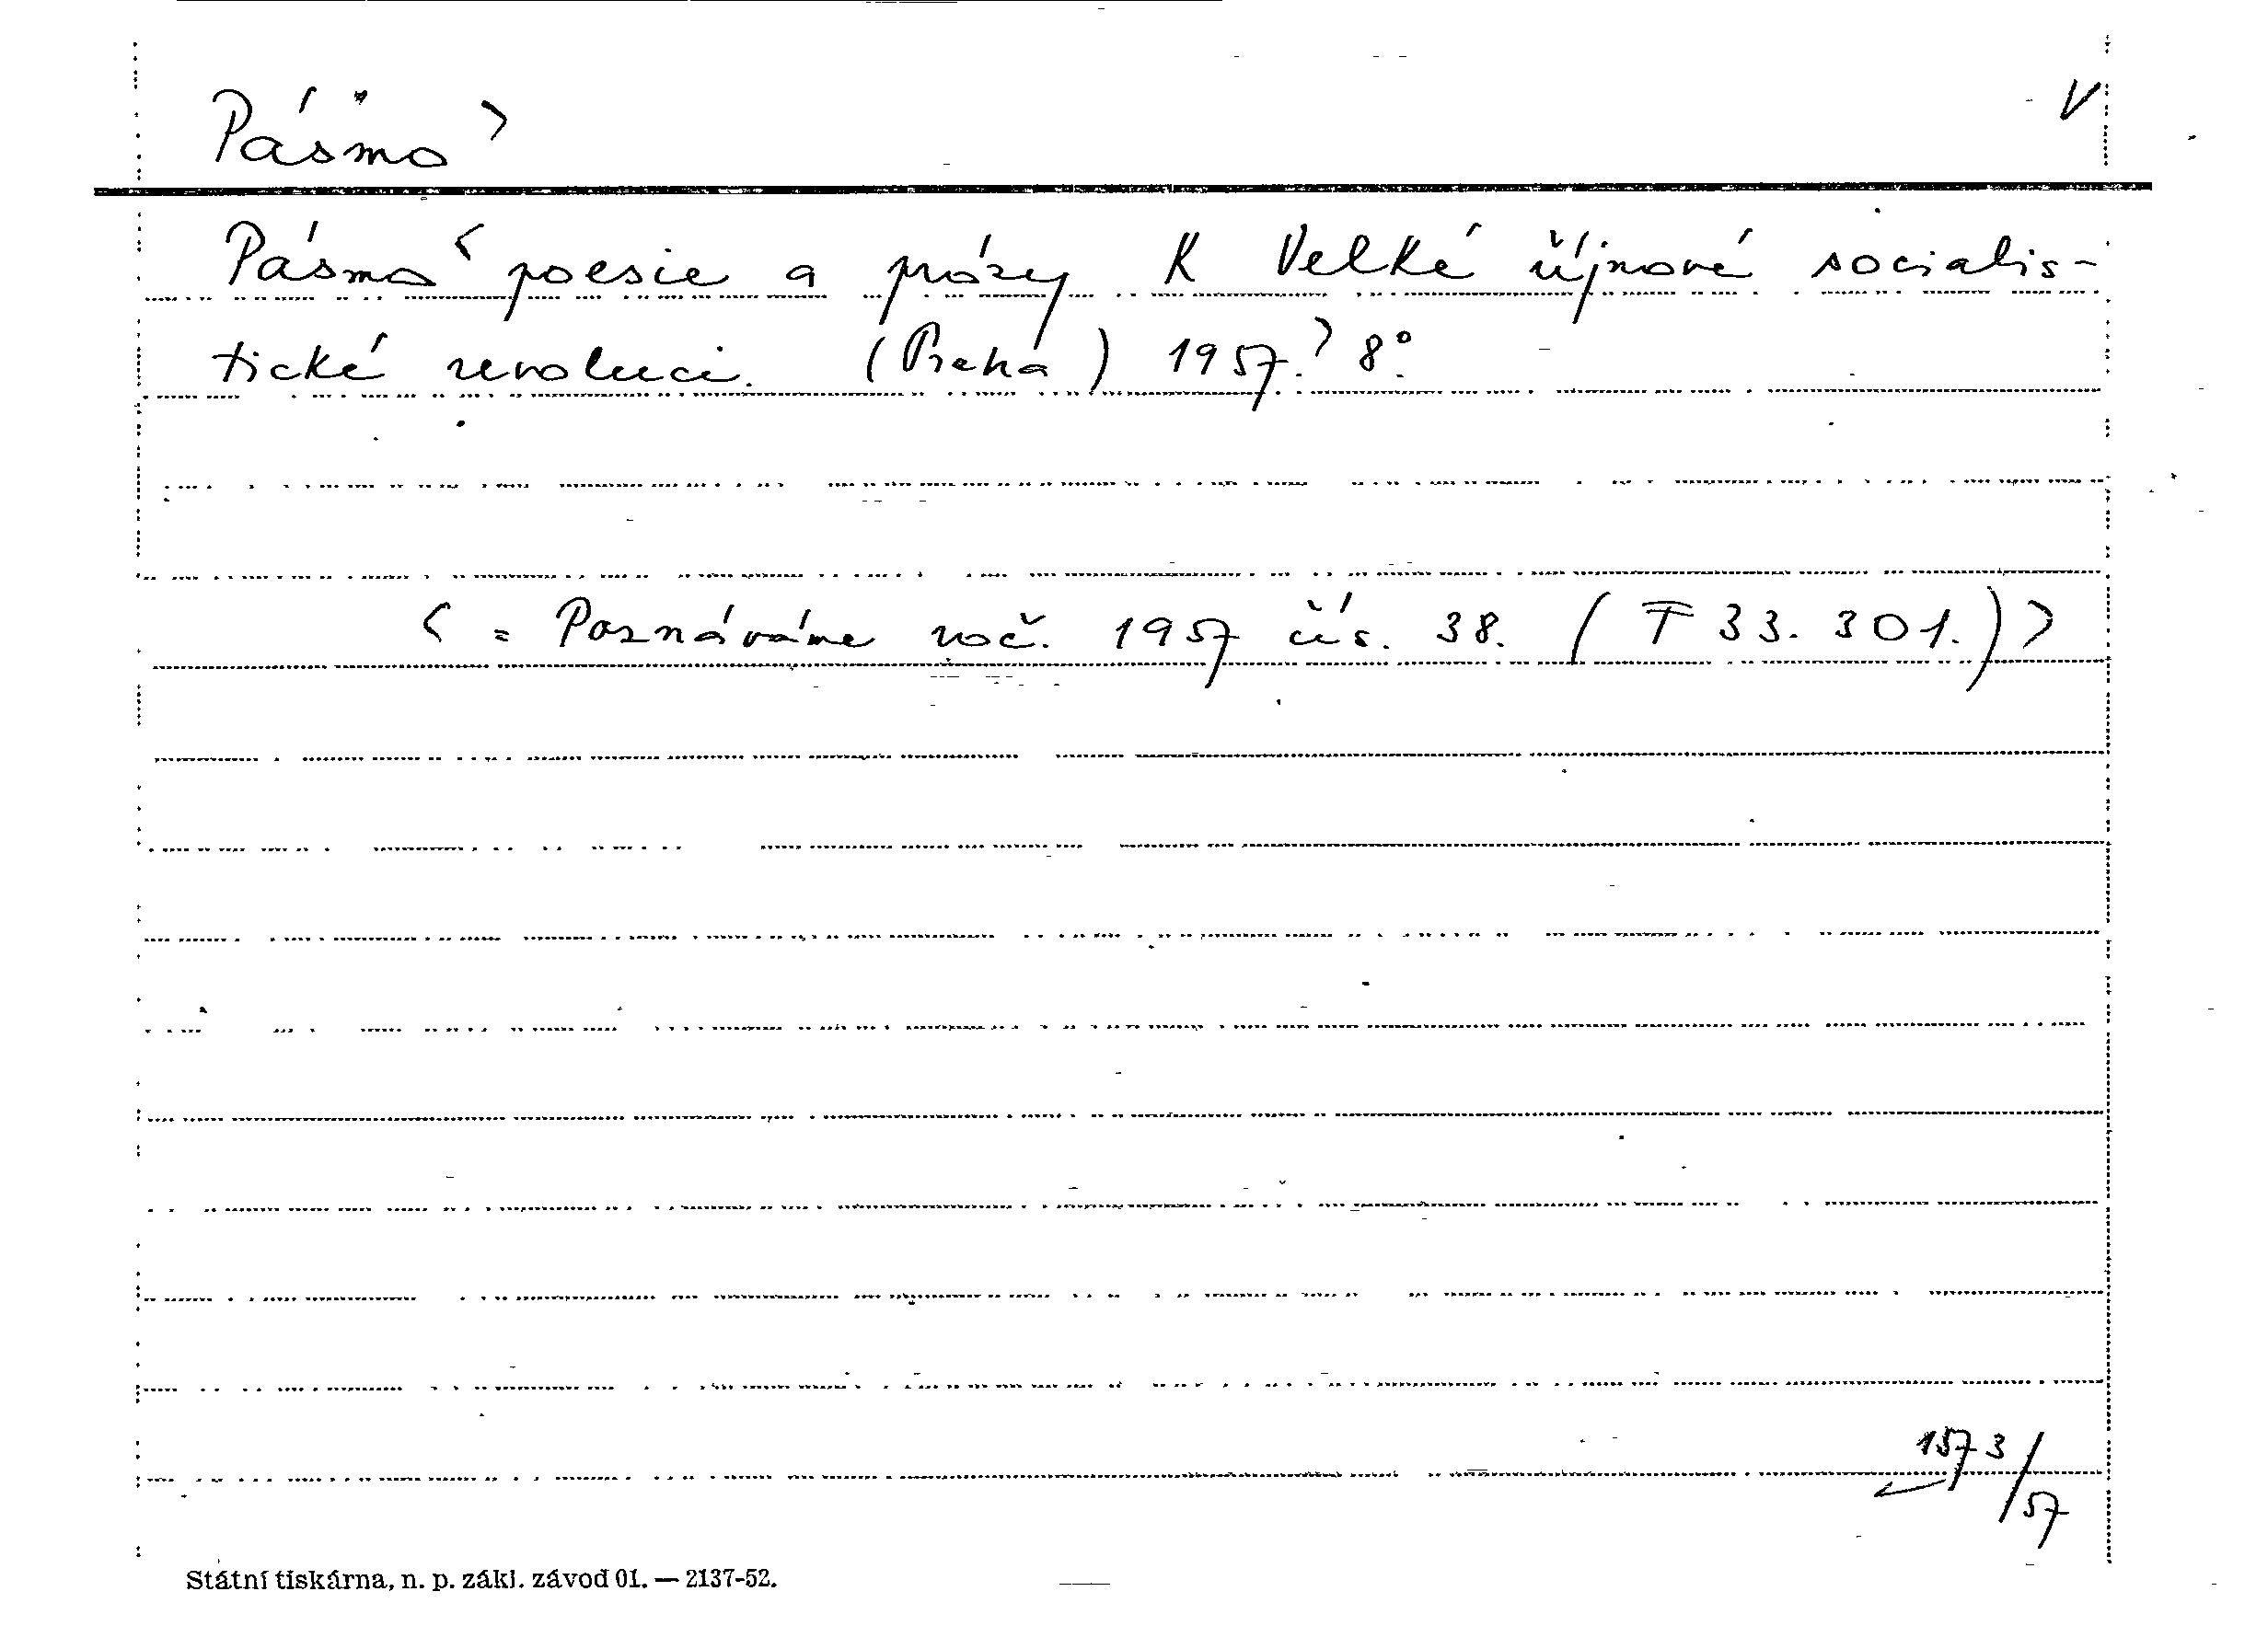 Pásmo > V
Pásmo < poesie a prózy K Velké říjnové socialis-
tické revoluci. (Praha) 1957. > 8°.
< = Poznáváme roč. 1957 čís. 38. (T 33.301.) >
1573/57
Státní tiskárna, n. p. zákl. závod 01. — 2137-52.